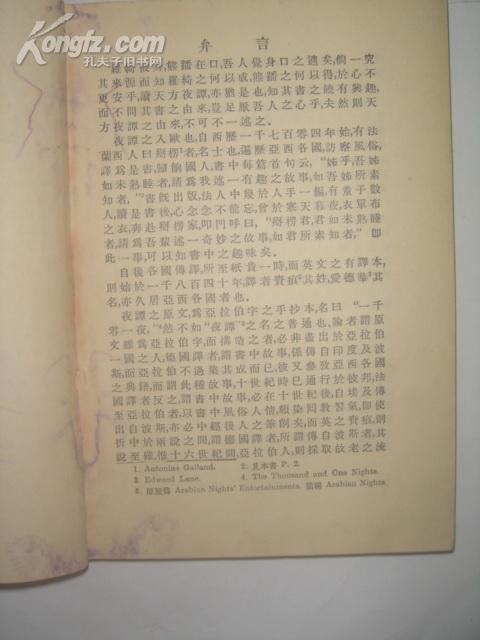 Kongfz.com
孔夫子旧书网
弁言
羅綺被身,熊蹯在口,吾人覺身口之適矣,倘一究
其來源,而知羅綺之何以成,熊蹯之何以得,於心不
更安乎,讀天方夜譚,亦猶是也,知其書之饒有興趣,
而不問其書之由來,豈足厭吾人之心乎,夫然則天
方夜譚之由來,不可不一述之.
夜譚之入歐也,自西歷一千七百零四年始,有法
蘭西人曰掰楞¹者,名士也,遍歷亞西各國,訪察風俗,
譯爲是書,歸餉國人,書中每篇首句云,“姊乎,吾姊
如未熟睡者,請爲我述一有趣之故事,如吾姊所素
知者,”²書既出版,法人中幾於人手一編,有童子數
人,讀是書後,心念念不能忘,曾於寒天暮夜,衣單布
之衣,奔赴掰楞家,叩門呼曰,“掰楞君,君如未熟睡
者,請爲吾輩述一奇妙之故事,如君所素知者,”卽
此一事,可以知書中之趣味矣.
自後各國傳譯,所至紙貴一時,而英文之有譯本,
則始於一千八百四十年,譯者賚痕³其姓,愛德華³其
名,亦久居亞西各國者也.
夜譚之原文,爲亞拉伯字之手抄本,名曰“一千
零一夜,”⁴然不如“夜譚”⁵之名之普通也,論者謂原
文雖爲亞拉伯字,而構造之者,必非盡出於亞拉伯
一國之人,德國譯者,謂書中故事,係傳自印度及波
斯,而亞拉伯不過集其成而已,彼又參攷亞西各國
之典籍,而謂此種故事,十世紀時已通行於彼邦,法
國譯者反之,謂書中故事,在十世紀後,自埃及傳
至亞拉伯者,以書中風俗人情,頗染囘教習氣,卽使
出自波斯,亦必中經後人之筆削矣,而英之賚痕,則
折中於兩說之間,謂德國譯者,所謂傳自波斯者,其
說至確,惟十六世紀間,亞拉伯人,則採取故老之流
1. Antonius Galland.
2. 見本書 P. 2.
3. Edward Lane.
4. The Thousand and One Nights.
5. 原屬爲 Arabian Nights' Entertainments. 簡稱 Arabian Nights.